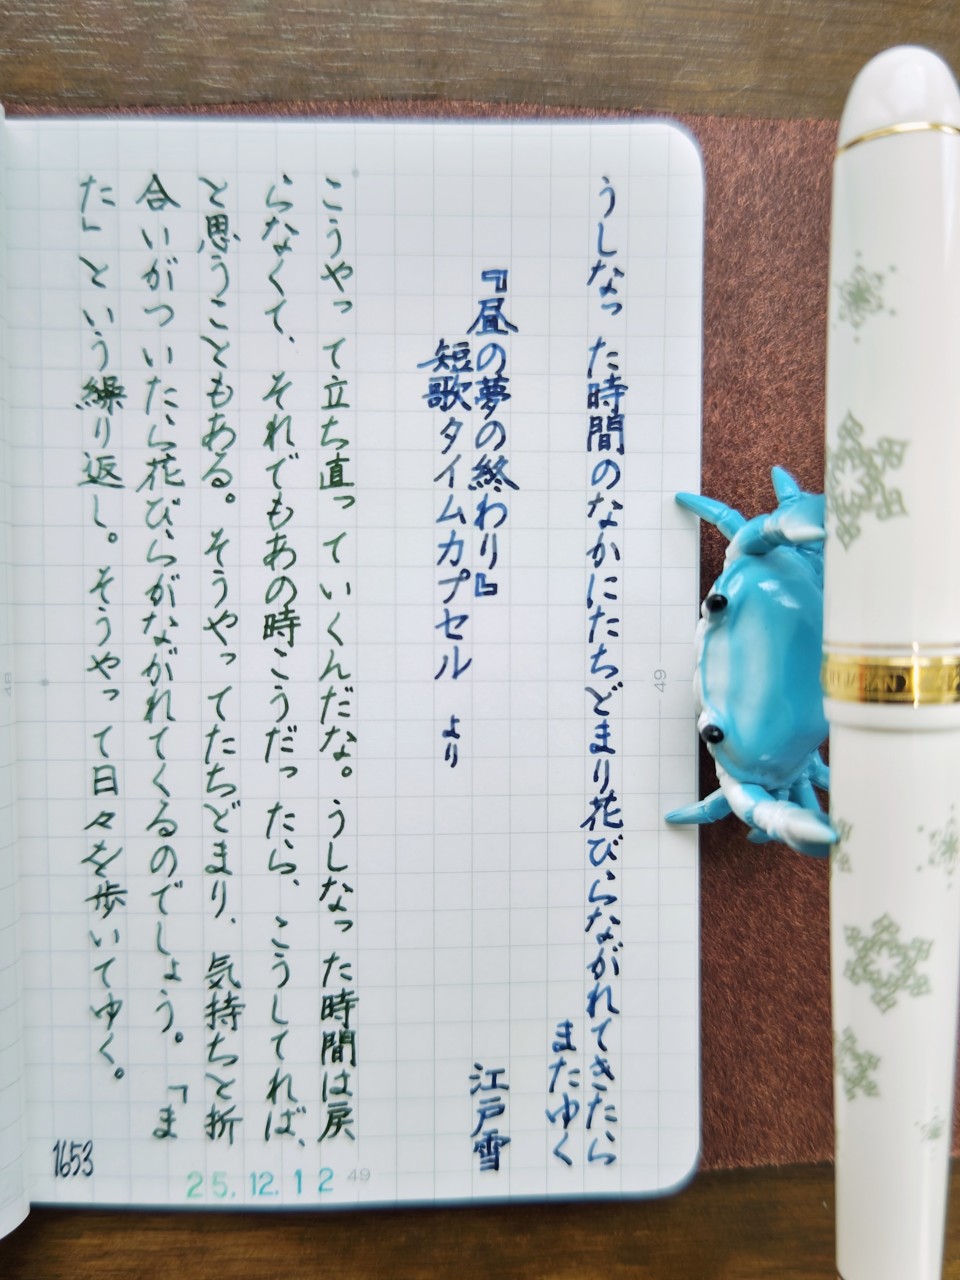 うしなった時間のなかにたちどまり花びらながれてきたら
またゆく
『昼の夢の終わり』
江戸雪
短歌タイムカプセル より
こうやって立ち直っていくんだな。うしなった時間は戻
らなくて、それでもあの時こうだったら、こうしてれば、
と思うこともある。そうやってたちどまり、気持ちと折
合いがついたら花びらがながれてくるのでしょう。「ま
た」という繰り返し。そうやって日々を歩いてゆく。
1653
25.12.12
49
49